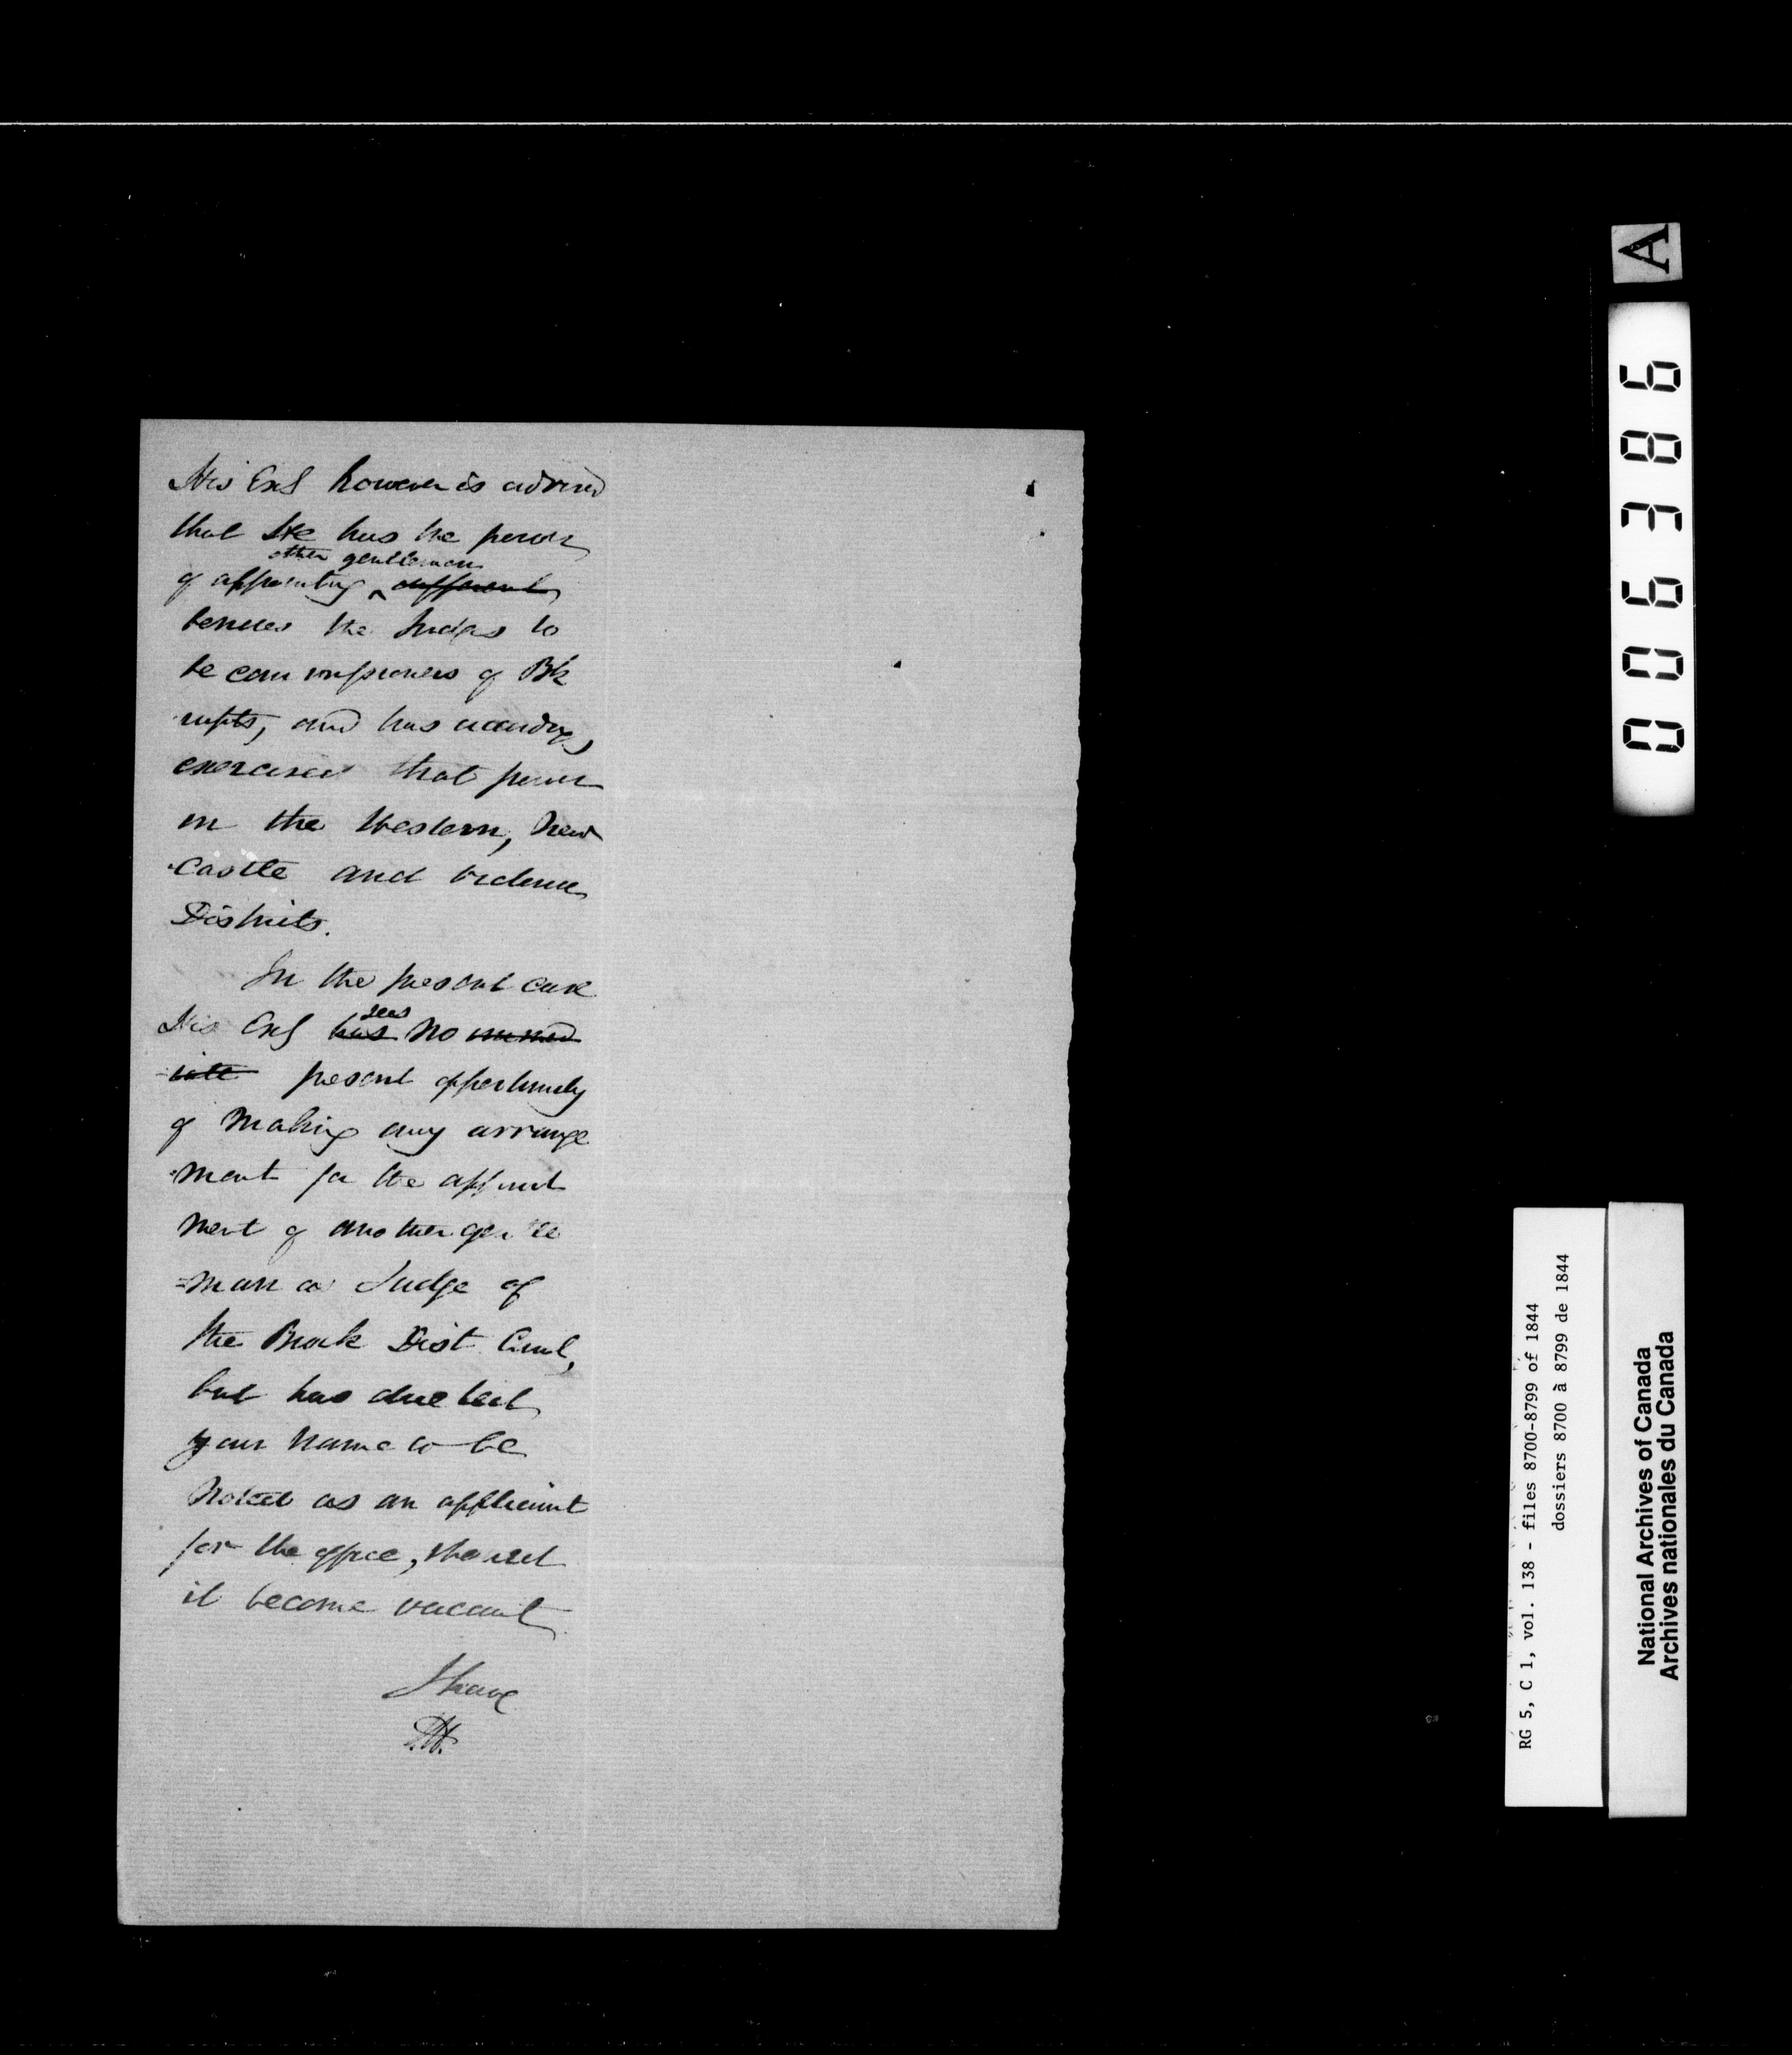 His Exc^y however is advised
that He has the power
of appointing other gentlemen ~~different~~
besides the Judges to
be commissioners of Bk
rupts, and has accordingly
exercised that power
in the Western, New
-Castle and
Districts.
In the present case
His Exc^y ~~has~~ sees no ~~immed~~
~~-iate~~ present opportunity
of making any arrange
-ment for the appoint
ment of another gentle
=man as Judge of
the Brock Dist Court,
but has directed
your name to be
noted as an applicant
for the office, should
it become vacant
I have
A
006386
RG 5, C 1, vol. 138 - files 8700-8799 of 1844
dossiers 8700 à 8799 de 1844
National Archives of Canada
Archives nationales du Canada